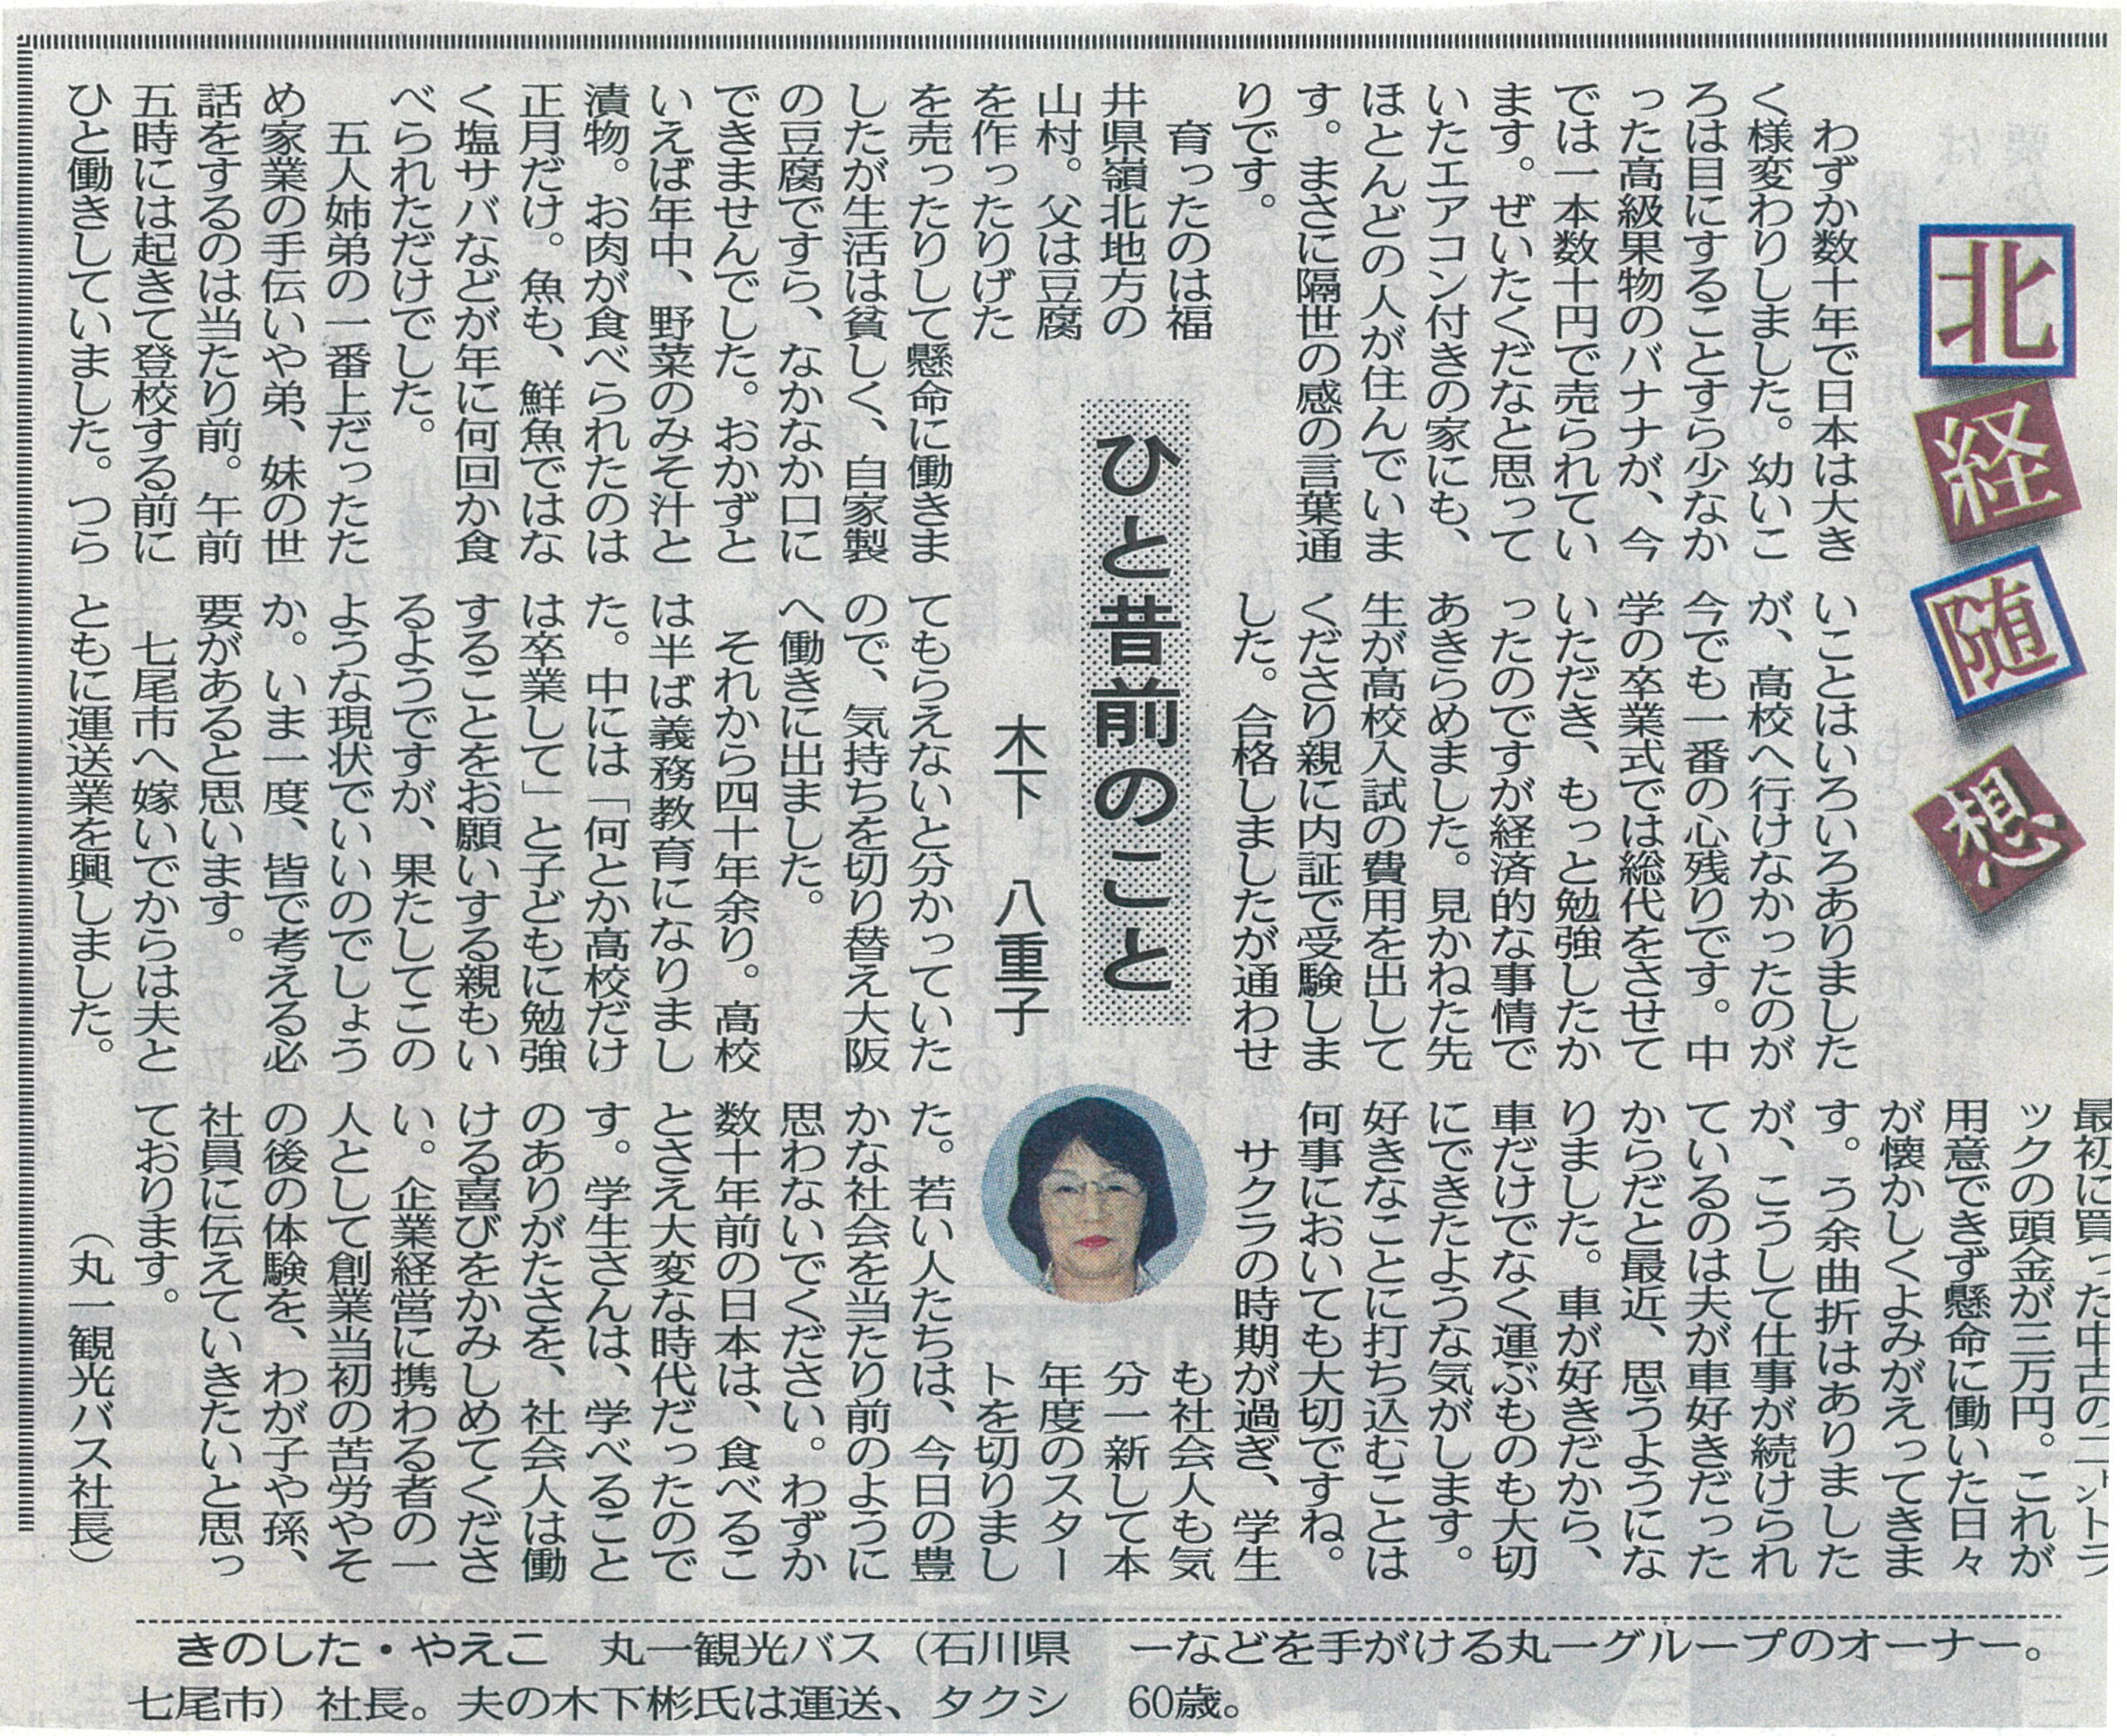 北経随想
ひと昔前のこと
木下　八重子
わずか数十年で日本は大き
く様変わりしました。幼いこ
ろは目にすることすら少なか
った高級果物のバナナが、今
では一本数十円で売られてい
ます。ぜいたくだなと思って
いたエアコン付きの家にも、
ほとんどの人が住んでいま
す。まさに隔世の感の言葉通
りです。
育ったのは福
井県嶺北地方の
山村。父は豆腐
を作ったりげた
を売ったりして懸命に働きま
したが生活は貧しく、自家製
の豆腐ですら、なかなか口に
できませんでした。おかずと
いえば年中、野菜のみそ汁と
漬物。お肉が食べられたのは
正月だけ。魚も、鮮魚ではな
く塩サバなどが年に何回か食
べられただけでした。
五人姉弟の一番上だったた
め家業の手伝いや弟、妹の世
話をするのは当たり前。午前
五時には起きて登校する前に
ひと働きしていました。つら
いことはいろいろありました
が、高校へ行けなかったのが
今でも一番の心残りです。中
学の卒業式では総代をさせて
いただき、もっと勉強したか
ったのですが経済的な事情で
あきらめました。見かねた先
生が高校入試の費用を出して
くださり親に内証で受験しま
した。合格しましたが通わせ
てもらえないと分かっていた
ので、気持ちを切り替え大阪
へ働きに出ました。
それから四十年余り。高校
は半ば義務教育になりまし
た。中には「何とか高校だけ
は卒業して」と子どもに勉強
することをお願いする親もい
るようですが、果たしてこの
ような現状でいいのでしょう
か。いま一度、皆で考える必
要があると思います。
七尾市へ嫁いでからは夫と
ともに運送業を興しました。
最初に買った中古の二㌧トラ
ックの頭金が三万円。これが
用意できず懸命に働いた日々
が懐かしくよみがえってきま
す。う余曲折はありました
が、こうして仕事が続けられ
ているのは夫が車好きだった
からだと最近、思うようにな
りました。車が好きだから、
車だけでなく運ぶものも大切
にできたような気がします。
好きなことに打ち込むことは
何事においても大切ですね。
サクラの時期が過ぎ、学生
も社会人も気
分一新して本
年度のスター
トを切りまし
た。若い人たちは、今日の豊
かな社会を当たり前のように
思わないでください。わずか
数十年前の日本は、食べるこ
とさえ大変な時代だったので
す。学生さんは、学べること
のありがたさを、社会人は働
ける喜びをかみしめてくださ
い。企業経営に携わる者の一
人として創業当初の苦労やそ
の後の体験を、わが子や孫、
社員に伝えていきたいと思っ
ております。
（丸一観光バス社長）
きのした・やえこ　丸一観光バス（石川県
七尾市）社長。夫の木下彬氏は運送、タクシ
ーなどを手がける丸一グループのオーナー。
60歳。